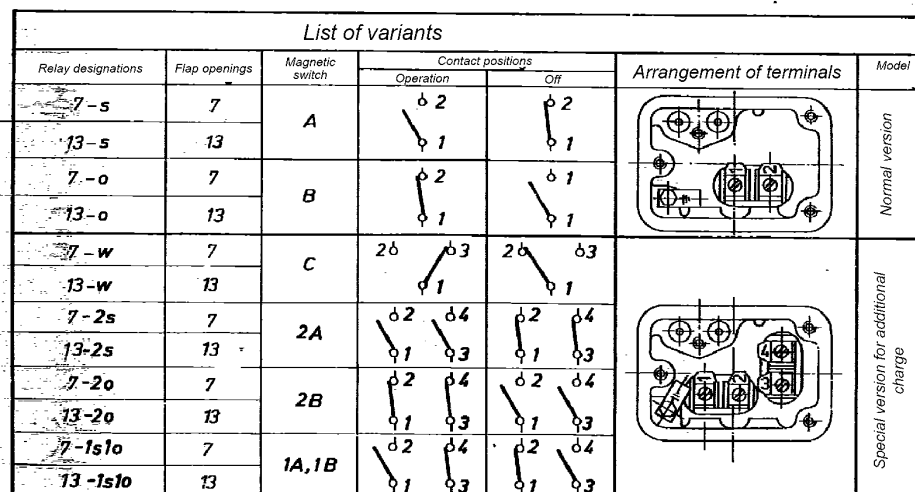 List of variants
Relay designations Flap openings Magnetic switch Contact positions Arrangement of terminals Model
Operation Off
7-s 7 A 2 1 2 1 1 2 Normal version
13-s 13
7-o 7 B 2 1 1 1
13-o 13
7-w 7 C 2 3 1 2 3 1 Special version for additional charge
13-w 13
7-2s 7 2A 2 4 1 3 2 4 1 3 1 2 3 4
13-2s 13
7-2o 7 2B 2 4 1 3 2 4 1 3
13-2o 13
7-1s1o 7 1A,1B 2 4 1 3 2 4 1 3
13-1s1o 13